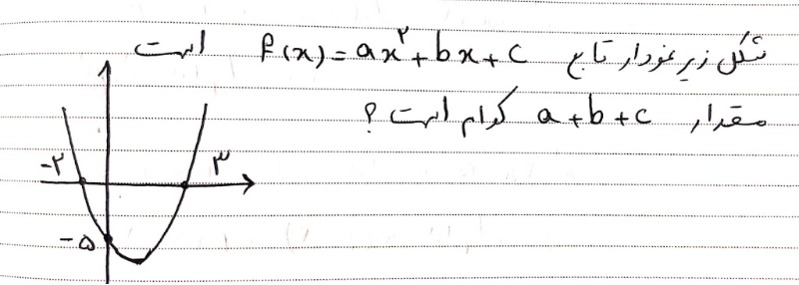 شکل زیر نمودار تابع f(x)=ax²+bx+c است
مقدار a+b+c کدام است ؟
-۲
۳
-۵